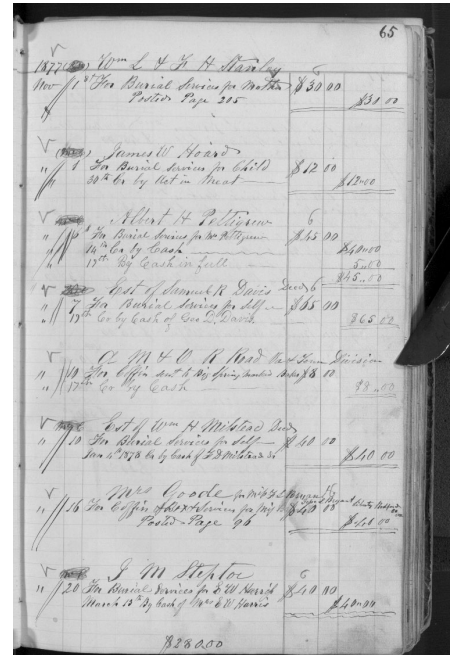 65
1877 Wm L & F H Stanley
Nov 1st For Burial Services for Mother $30 00
Posted Page 205 $30 00
James W Hoard
" 1 For Burial Services for Child $12 00
30th Cr by Act in Meat $12 00
Albert H Pettigrew
" 5 For Burial Services for Wm Pettigrew $45 00
14th Cr by Cash $40 00
17th By Cash in full 5 00
$45 00
Est of Samuel R Davis Decd
" 7 For Burial Services for Self $65 00
17th Cr by Cash of Geo D. Davis $65 00
A M & O R Road Division
" 10 For Coffin sent to Big Spring $8 00
17th Cr by Cash $8 00
Est of Wm H Milstead Decd
" 10 For Burial Services for Self $40 00
Jan 4th 1878 Cr by Cash of Milstead $40 00
Mrs Goode for
" 16 For Coffin & Box & Services for $40 00
Posted Page 96 $40 00
J M Steptoe
" 20 For Burial Services for E W Harris $40 00
March 15th By Cash of Mrs E W Harris $40 00
$280.00